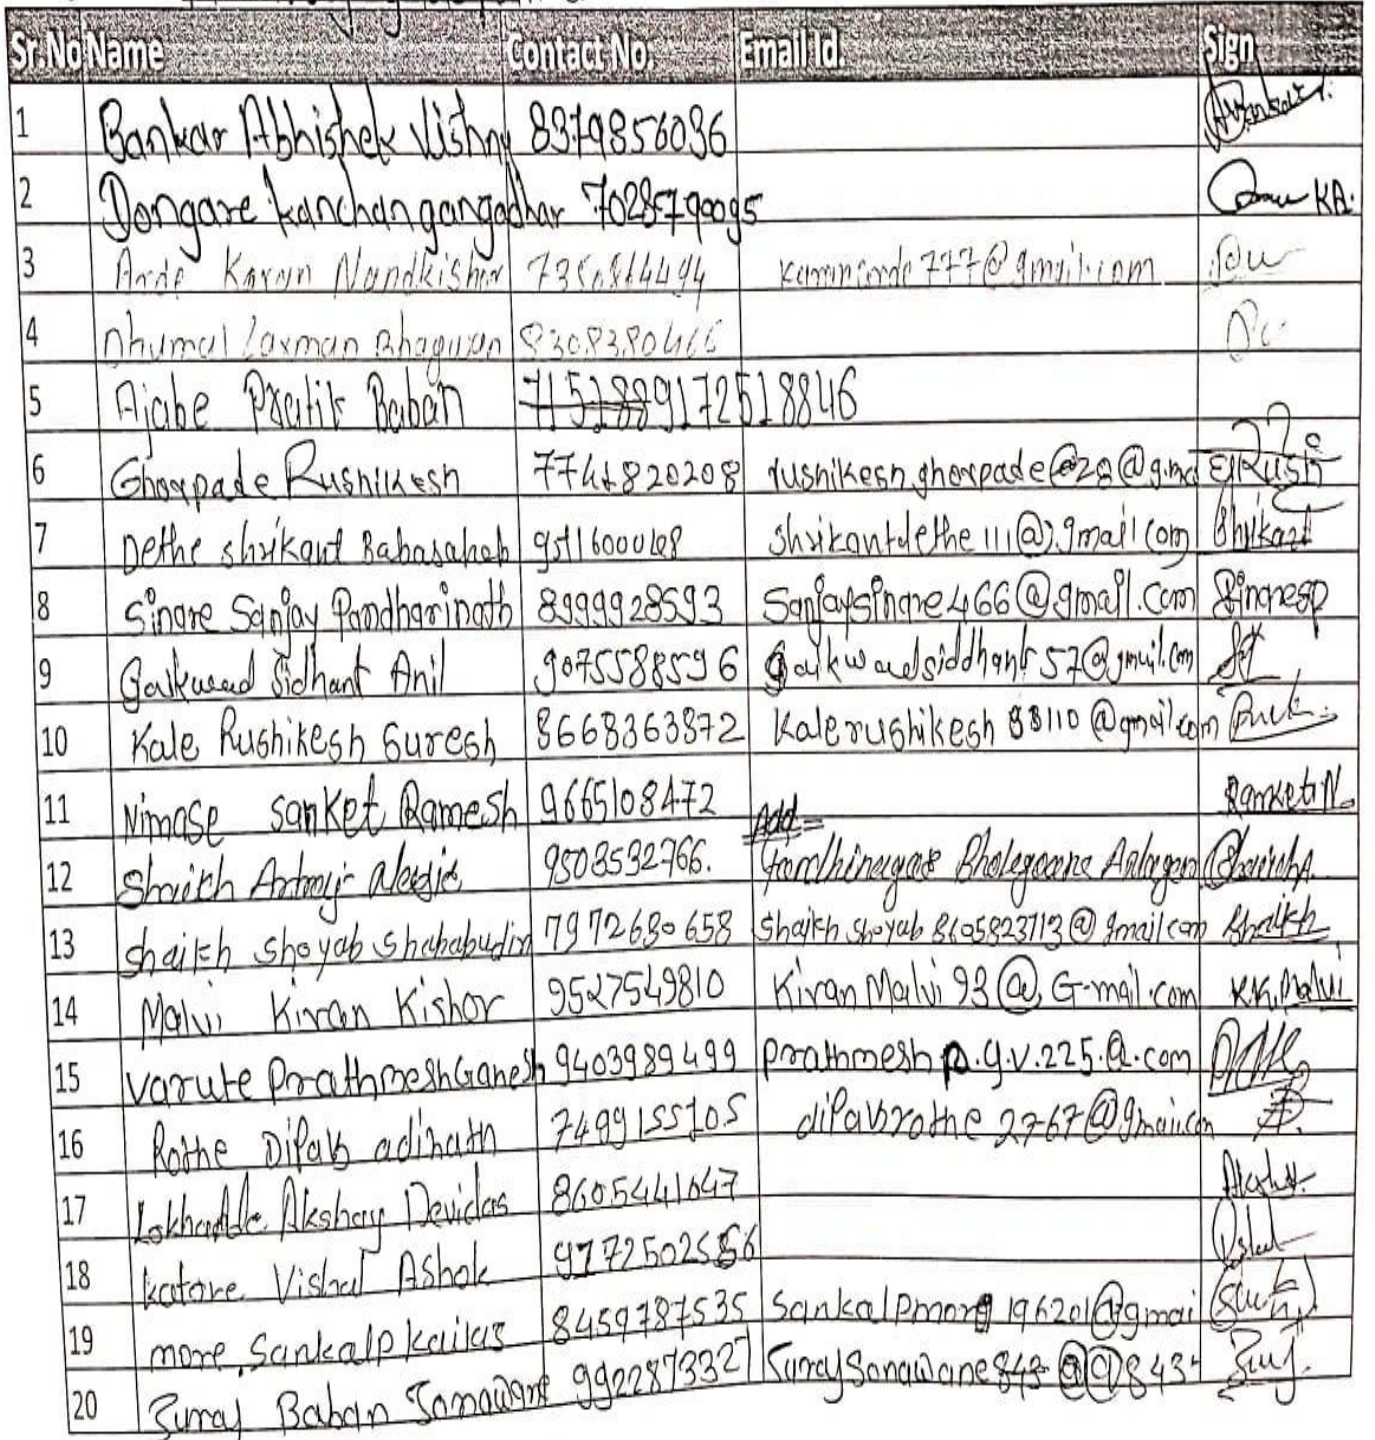 Sr.No Name Contact No. Email Id. Sign
1 Bankar Abhishek Vishnu 8379856036
2 Dongare kanchan gangadhar 7028579095 KA.
3 Arde Karan Nandkishor @gmail.com
4 Dhumal Laxman Bhagwan 8308380466
5 Ajabe Pratik Baban 9172518846
6 Ghorpade Rushikesh 7741820208 rushikesh ghorpade@28@gmai Rush
7 Dethe shrikant Babasaheb 9511600048 shrikantdethe111@gmail com Shrikant
8 Singre Sanjay Pandharinath 8999928593 Sanjaysingre466@gmail.com Singresp
9 Gaikwad Sidhant Anil 9075588596 gaikwadsiddhant57@gmail.com
10 Kale Rushikesh Suresh 8668363872 Kalerushikesh 88110@gmail.com
11 Nimase sanket Ramesh 9665108472 Sanket.N.
12 Shaikh 9503532766. Add= Gandhinagar
13 shaikh shoyab shahabudin 7972680658 Shaikh shoyab 8605823713@gmail com Shaikh
14 Malvi Kiran Kishor 9527549810 Kiran Malvi 93@G-mail.com K.K.Malvi
15 varute Prathmesh Ganesh 9403989499 Prathmesh p.g.v.225.@.com
16 Rothe Dipak adinath 7499155705 dipakrothe 2767@gmail.com
17 Lokhande Akshay Devidas 8605441647 Akshay.
18 katore Vishal Ashok 9772502586
19 more Sankalp kailas 8459787535 Sankalpmore 196201@gmai
20 Suraj Baban Sonawane 9922873327 SuraySonawane 843 @@843 Suraj.